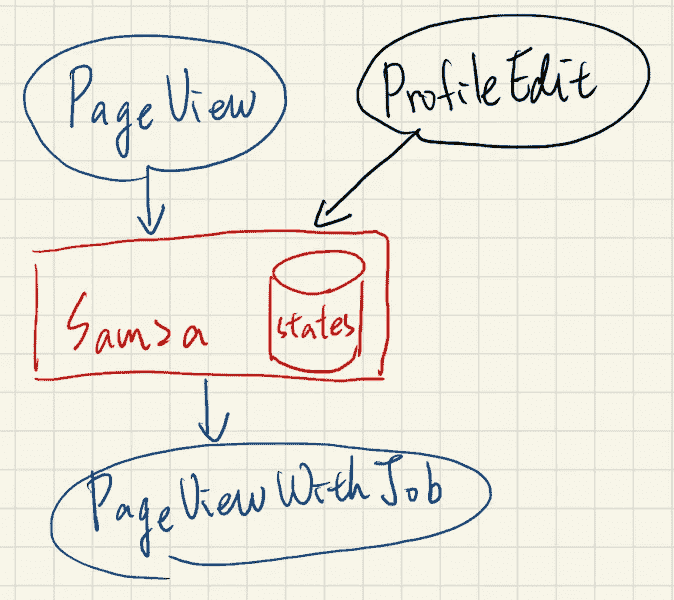 PageView
ProfileEdit
Samza
states
PageViewWithJob